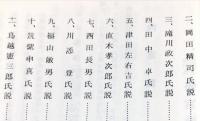 二、岡田精司氏説……
三、滝川政次郎氏説……
四、田中 卓氏説……
五、津田左右吉氏説……
六、直木孝次郎氏説……
七、西田長男氏説……
八、川添 登氏説……
九、福山敏男氏説……
十、筑紫申真氏説……
十一、鳥越憲三郎氏説……